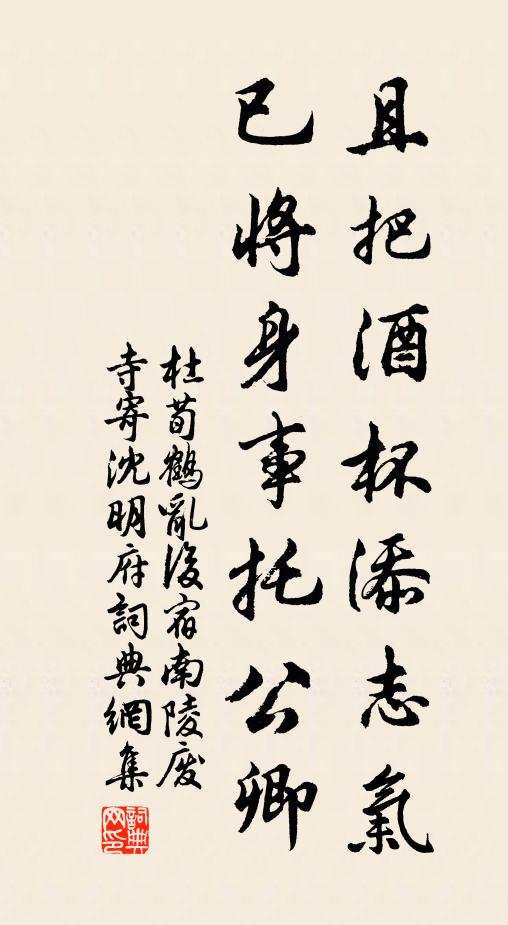 且把酒杯添志氣
已將身事托公卿
杜荀鶴亂後宿南陵廢
寺寄沈明府詞典網集
詞典
网印